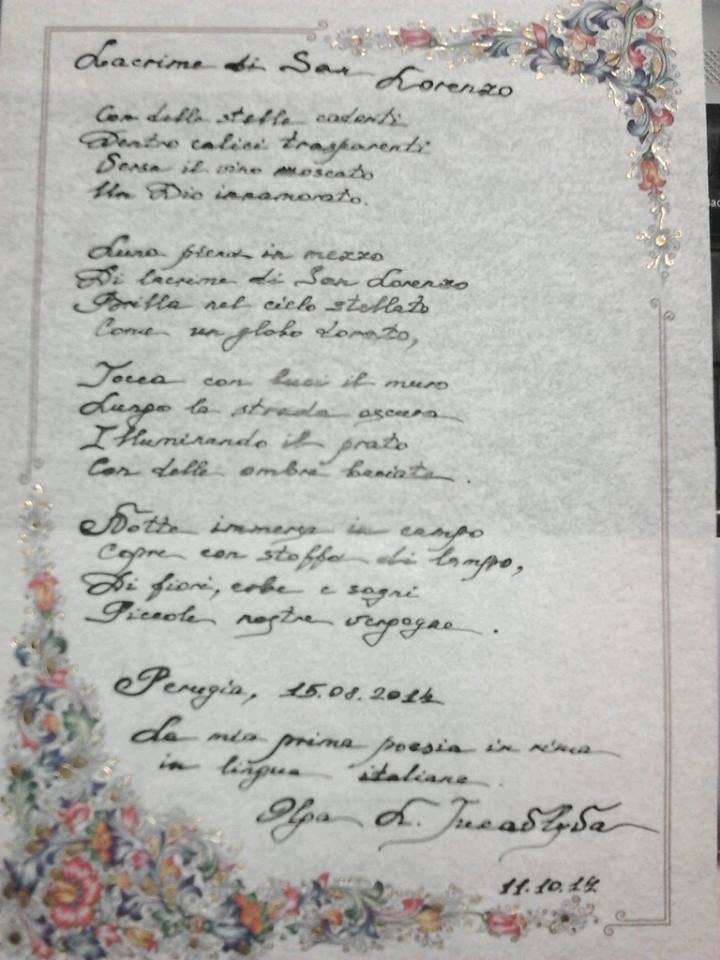 Lacrime di San Lorenzo
Con delle stelle cadenti
Dentro calici trasparenti
Versa il vino moscato
Un Dio innamorato.
Luna piena in mezzo
Di lacrime di San Lorenzo
Brilla nel cielo stellato
Come un globo dorato,
Tocca con luci il muro
Lungo la strada oscura
Illuminando il prato
Con delle ombre baciata.
Notte immersa in campo
Copre con stoffa di lampo,
Di fiori, erbe e sogni
Piccole nostre vergogne.
Perugia, 15.08.2014
La mia prima poesia in rima
in lingua italiana.
Olga
11.10.14